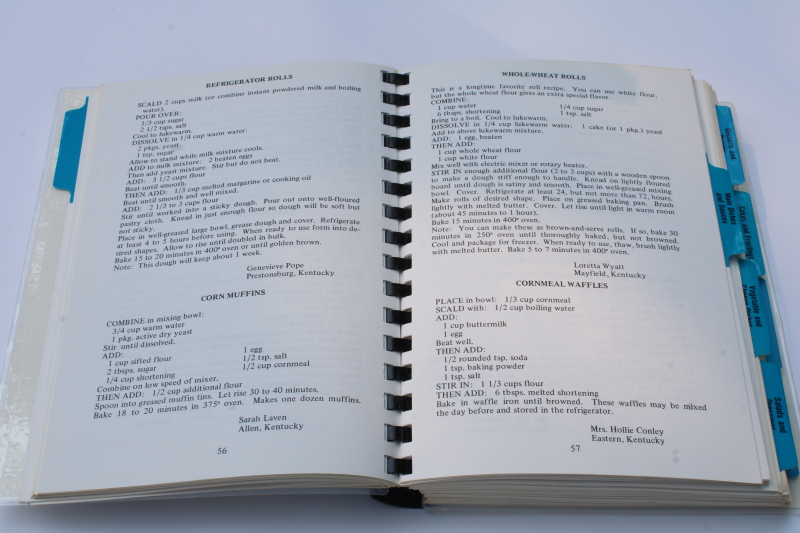 REFRIGERATOR ROLLS
SCALD 2 cups milk (or combine instant powdered milk and boiling
water).
POUR OVER:
1/3 cup sugar
2 1/2 tsps. salt
Cool to lukewarm.
DISSOLVE in 1/4 cup warm water:
2 pkgs. yeast
1 tsp. sugar
Allow to stand while milk mixture cools.
ADD to milk mixture: 2 beaten eggs
Then add yeast mixture. Stir but do not beat.
ADD: 3 1/2 cups flour
Beat until smooth.
THEN ADD: 1/3 cup melted margarine or cooking oil
Beat until smooth and well mixed.
ADD: 2 1/3 to 3 cups flour
Stir until worked into a sticky dough. Pour out onto well-floured
pastry cloth. Knead in just enough flour so dough will be soft but
not sticky.
Place in well-greased large bowl, grease dough and cover. Refrigerate
at least 4 to 5 hours before using. When ready to use form into de-
sired shapes. Allow to rise until doubled in bulk.
Bake 15 to 20 minutes in 400º oven or until golden brown.
Note: This dough will keep about 1 week.
Genevieve Pope
Prestonsburg, Kentucky
CORN MUFFINS
COMBINE in mixing bowl:
3/4 cup warm water
1 pkg. active dry yeast
Stir until dissolved.
ADD:
1 cup sifted flour 1 egg
2 tbsps. sugar 1/2 tsp. salt
1/4 cup shortening 1/2 cup cornmeal
Combine on low speed of mixer.
THEN ADD: 1/2 cup additional flour
Spoon into greased muffin tins. Let rise 30 to 40 minutes.
Bake 18 to 20 minutes in 375º oven. Makes one dozen muffins.
Sarah Laven
Allen, Kentucky
56
WHOLE-WHEAT ROLLS
This is a longtime favorite roll recipe. You can use white flour,
but the whole wheat flour gives an extra special flavor.
COMBINE:
1 cup water 1/4 cup sugar
6 tbsps. shortening 1 tsp. salt
Bring to a boil. Cool to lukewarm.
DISSOLVE in 1/4 cup lukewarm water: 1 cake (or 1 pkg.) yeast
Add to above lukewarm mixture.
ADD: 1 egg, beaten
THEN ADD:
1 cup whole wheat flour
1 cup white flour
Mix well with electric mixer or rotary beater.
STIR IN enough additional flour (2 to 3 cups) with a wooden spoon
to make a dough stiff enough to handle. Knead on lightly floured
board until dough is satiny and smooth. Place in well-greased mixing
bowl. Cover. Refrigerate at least 24, but not more than 72, hours.
Make rolls of desired shape. Place on greased baking pan. Brush
lightly with melted butter. Cover. Let rise until light in warm room
(about 45 minutes to 1 hour).
Bake 15 minutes in 400º oven.
Note: You can make these as brown-and-serve rolls. If so, bake 30
minutes in 250º oven until thoroughly baked, but not browned.
Cool and package for freezer. When ready to use, thaw, brush lightly
with melted butter. Bake 5 to 7 minutes in 400º oven.
Loretta Wyatt
Mayfield, Kentucky
CORNMEAL WAFFLES
PLACE in bowl: 1/3 cup cornmeal
SCALD with: 1/2 cup boiling water
ADD:
1 cup buttermilk
1 egg
Beat well.
THEN ADD:
1/2 rounded tsp. soda
1 tsp. baking powder
1 tsp. salt
STIR IN: 1 1/3 cups flour
THEN ADD: 6 tbsps. melted shortening
Bake in waffle iron until browned. These waffles may be mixed
the day before and stored in the refrigerator.
Mrs. Hollie Conley
Eastern, Kentucky
57
Main Dishes
and Sauces
Cakes and Frostings
Vegetable and
Salads and